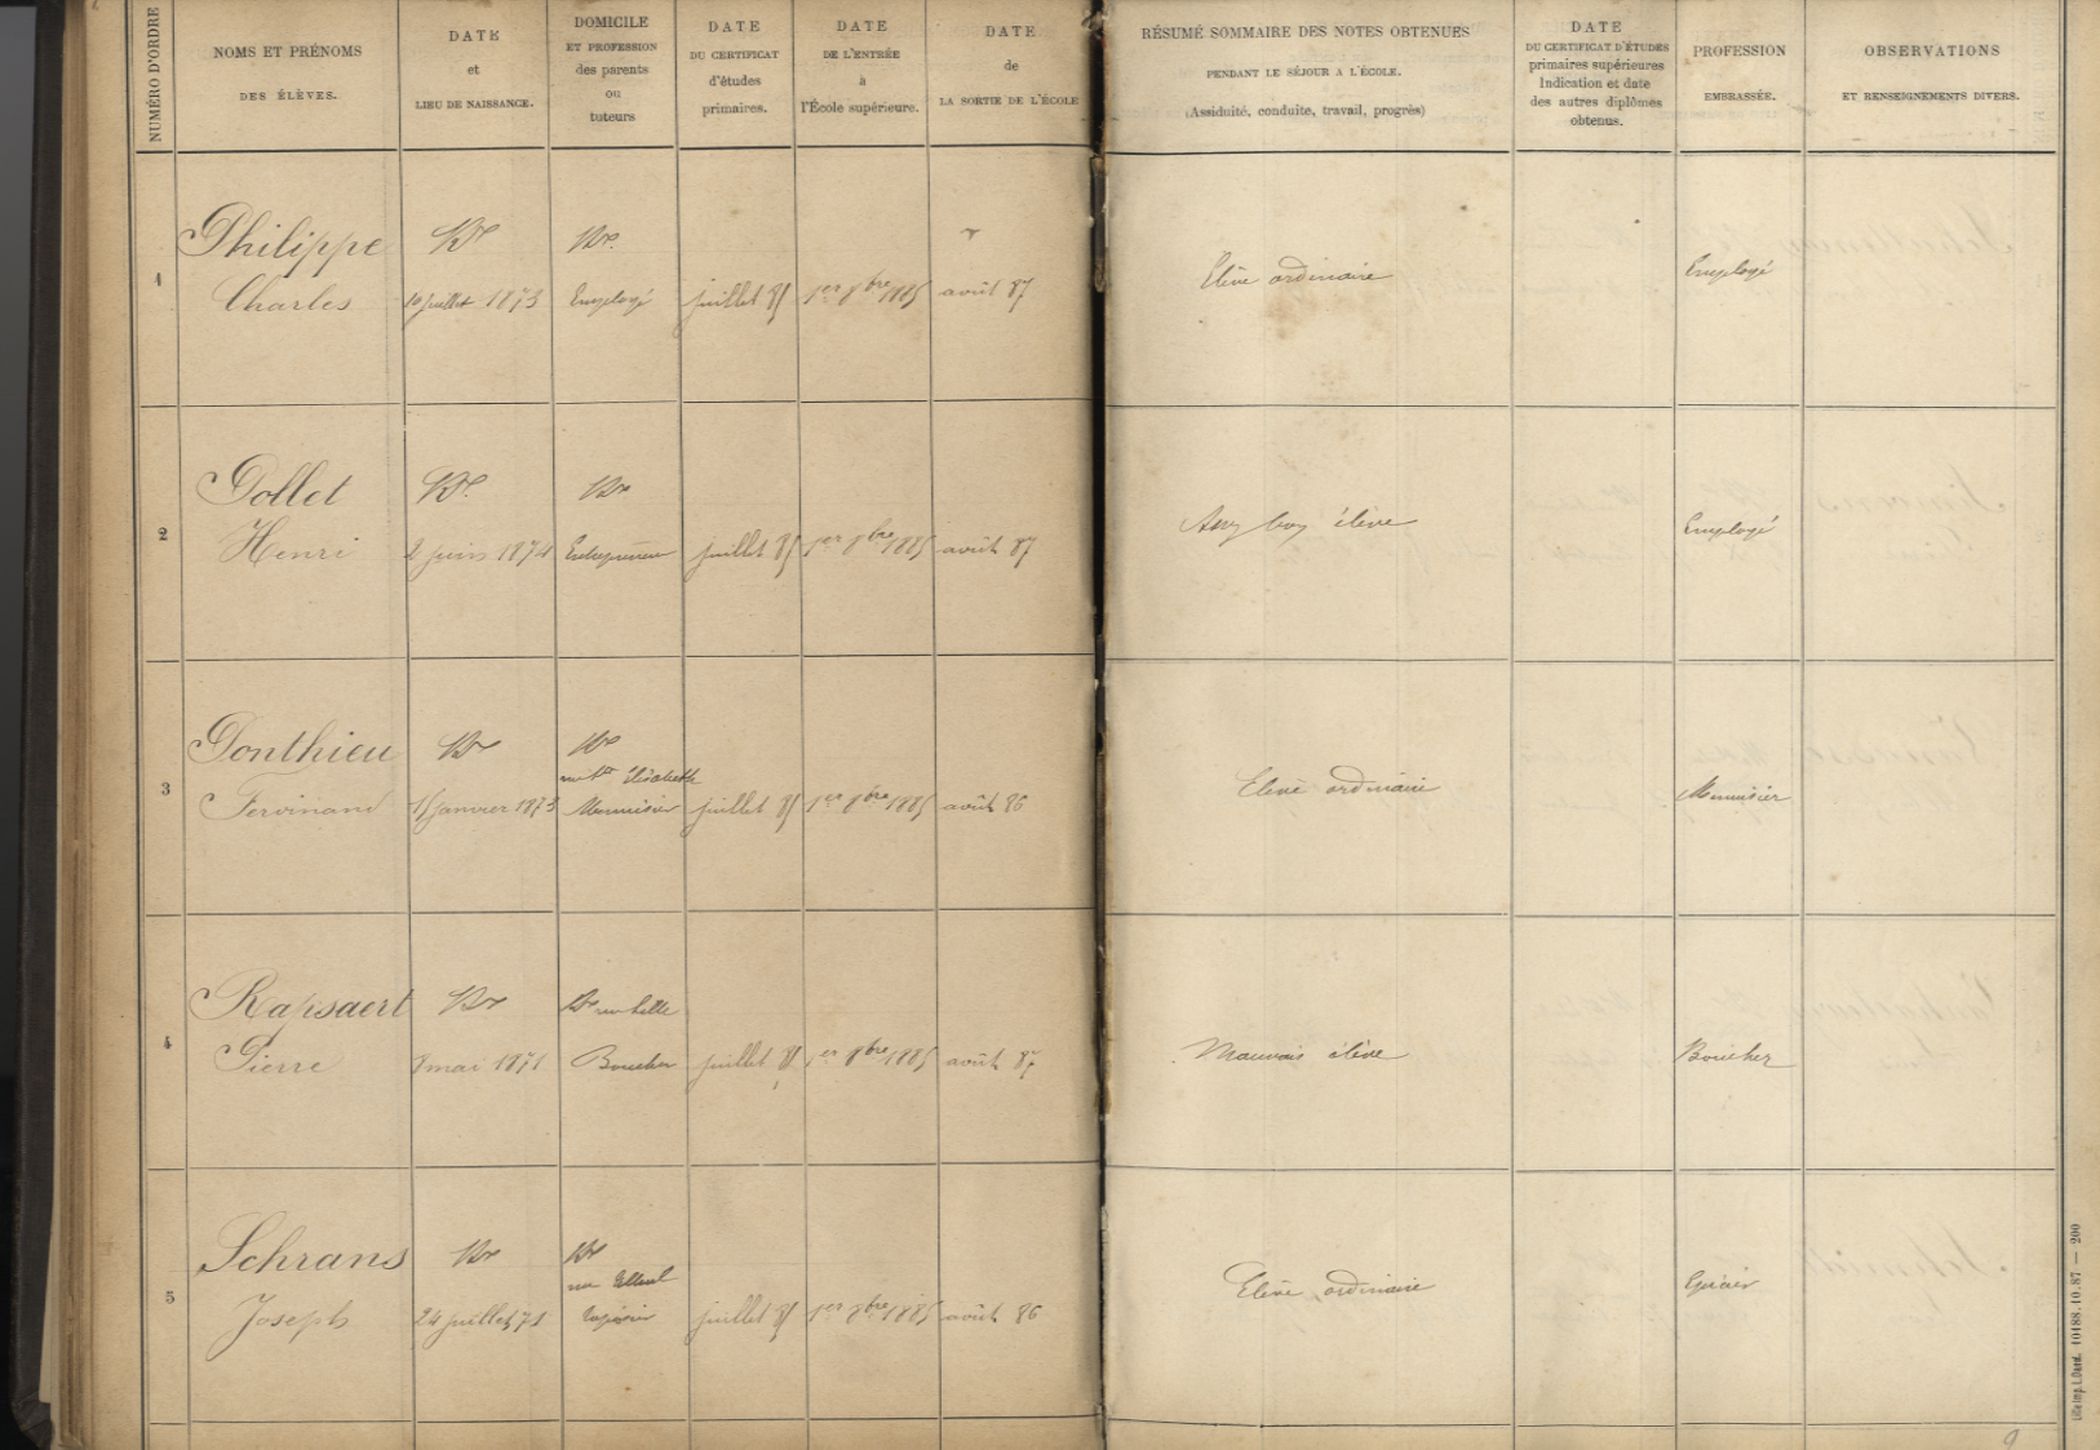 NUMÉRO D'ORDRE
NOMS ET PRÉNOMS
DES ÉLÈVES.
DATE
et
LIEU DE NAISSANCE.
DOMICILE
ET PROFESSION
des parents
ou
tuteurs
DATE
DU CERTIFICAT
d'études
primaires.
DATE
DE L'ENTRÉE
à
l'École supérieure.
DATE
de
LA SORTIE DE L'ÉCOLE
RÉSUMÉ SOMMAIRE DES NOTES OBTENUES
PENDANT LE SÉJOUR A L'ÉCOLE.
(Assiduité, conduite, travail, progrès)
DATE
DU CERTIFICAT D'ÉTUDES
primaires supérieures
Indication et date
des autres diplômes
obtenus.
PROFESSION
EMBRASSÉE.
OBSERVATIONS
ET RENSEIGNEMENTS DIVERS.
1
Philippe
Charles
Rx
10 juillet 1873
Rx.
Employé
juillet 85
1er 8bre 1885
août 87
Elève ordinaire
Employé
2
Pollet
Henri
Rx.
2 juin 1874
Rx
Entrepreneur
juillet 85
1er 8bre 1885
août 87
Assez bon élève
Employé
3
Ponthieu
Ferdinand
Rx
15 janvier 1873
Rx
Elisabeth
Menuisier
juillet 85
1er 8bre 1885
août 86
Elève ordinaire
Menuisier
4
Rapsaert
Pierre
Rx
8 mai 1871
Rx rue
Boucher
juillet 85
1er 8bre 1885
août 87
Mauvais élève
Boucher
5
Schrans
Joseph
Rx
24 juillet 71
Rx
rue
juillet 85
1er 8bre 1885
août 86
Elève ordinaire
Lille Imp. L. Danel. 10188.10.87 — 200
9